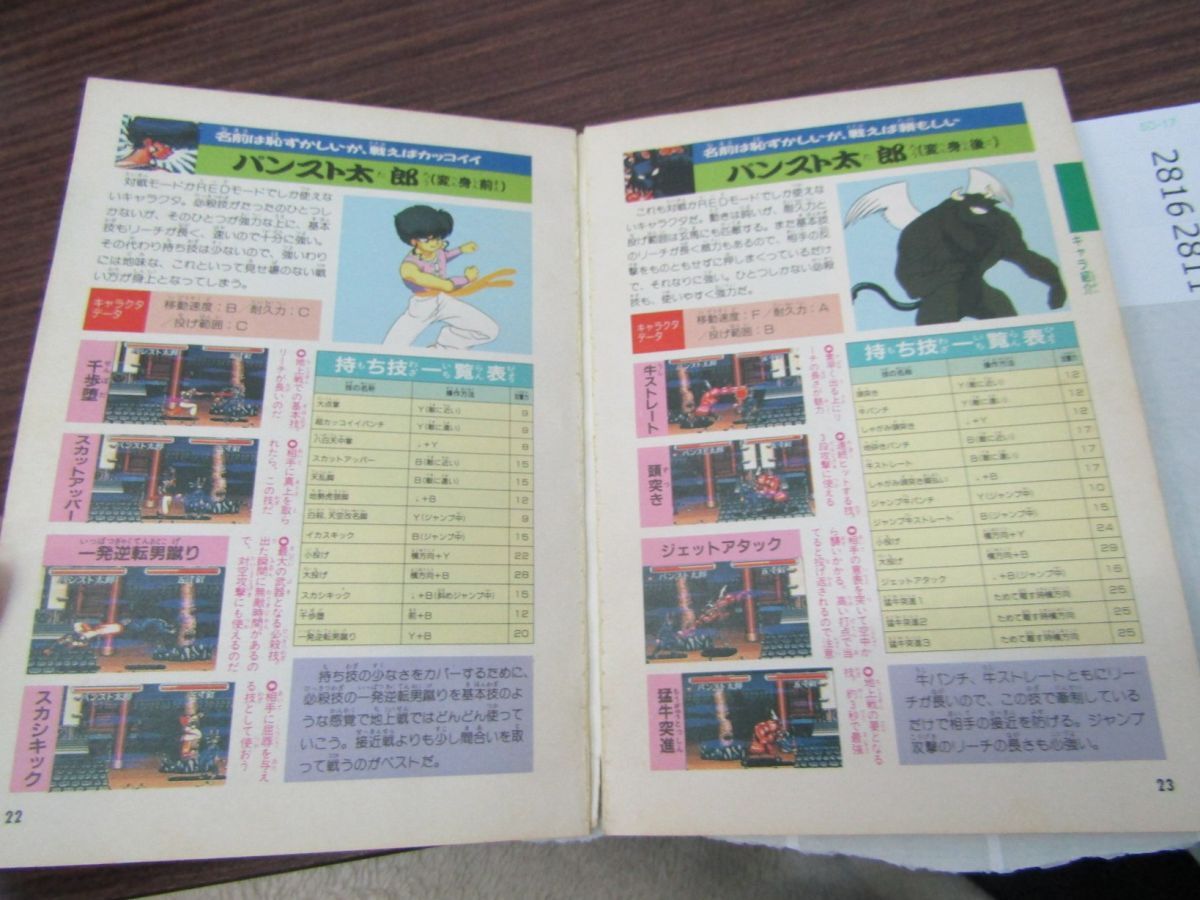 名前は恥ずかしいが、戦えばカッコイイ
パンスト太郎(変身前)
対戦モードかREDモードでしか使えな
いキャラクタ。必殺技がたったのひとつし
かないが、そのひとつが強力な上に、基本
技もリーチが長く、速いので十分に強い。
その代わり持ち技は少ないので、強いわり
には地味な、これといって見せ場のない戦
い方が身上となってしまう。
キャラクタ
データ
移動速度:B/耐久力:C
/投げ範囲:C
千歩堕
地上戦での基本技。
リーチが長いのだ
スカットアッパー
相手に真上を取ら
れたら、この技だ
いっぱつぎゃくてんおとこげ
一発逆転男蹴り
最大の武器となる必殺技。
出た瞬間に無敵時間があるの
で、対空攻撃にも使えるのだ
スカシキック
相手に屈辱を与え
る技として使おう
持ち技一覧表
技の名称 操作方法
大点掌 Y(敵に近い) 9
超カッコイイパンチ Y(敵に遠い) 9
八白天中掌 ↓+Y 8
スカットアッパー B(敵に近い) 15
天乱脚 B(敵に遠い) 15
地勢虎狼脚 ↓+B 12
白殺、天空改名脚 Y(ジャンプ中) 9
イカスキック B(ジャンプ中) 15
小投げ 横方向+Y 22
大投げ 横方向+B 28
スカシキック ↓+B(斜めジャンプ中) 15
千歩堕 前+B 12
一発逆転男蹴り Y+B 20
持ち技の少なさをカバーするために、
必殺技の一発逆転男蹴りを基本技のよ
うな感覚で地上戦ではどんどん使って
いこう。接近戦よりも少し間合いを取
って戦うのがベストだ。
22
名前は恥ずかしいが、戦えば頼もしい
パンスト太郎(変身後)
これも対戦かREDモードでしか使えな
いキャラクタだ。動きは鈍いが、耐久力と
投げ範囲は玄馬にも匹敵する。また基本技
のリーチが長く威力もあるので、相手の反
撃をものともせずに押しまくっているだけ
で、それなりに強い。ひとつしかない必殺
技も、使いやすく強力だ。
キャラクタ
データ
移動速度:F/耐久力:A
/投げ範囲:B
牛ストレート
素早く出る上にリ
ーチの長さが魅力
頭突き
連続ヒットする技。
3段攻撃に使える
ジェットアタック
相手の意表を突いて空中か
ら襲いかかる。高い打点で当
てると投げ返されるので注意
猛牛突進
地上戦の要となる
技。約3秒で最強
持ち技一覧表
技の名称 操作方法
頭突き Y(敵に近い) 12
牛パンチ Y(敵に遠い) 12
しゃがみ頭突き ↓+Y 12
地砕きパンチ B(敵に近い) 17
牛ストレート B(敵に遠い) 17
しゃがみ頭突き脚払い ↓+B 17
ジャンプ牛パンチ Y(ジャンプ中) 10
ジャンプ牛ストレート B(ジャンプ中) 15
小投げ 横方向+Y 24
大投げ 横方向+B 29
ジェットアタック ↓+B(ジャンプ中) 16
猛牛突進1 ためて離す時横方向 25
猛牛突進2 ためて離す時横方向 25
猛牛突進3 ためて離す時横方向 25
牛パンチ、牛ストレートともにリー
チが長いので、この技で牽制している
だけで相手の接近を防げる。ジャンプ
攻撃のリーチの長さも心強い。
23
キャラ紹介
SD-17
2816 2811